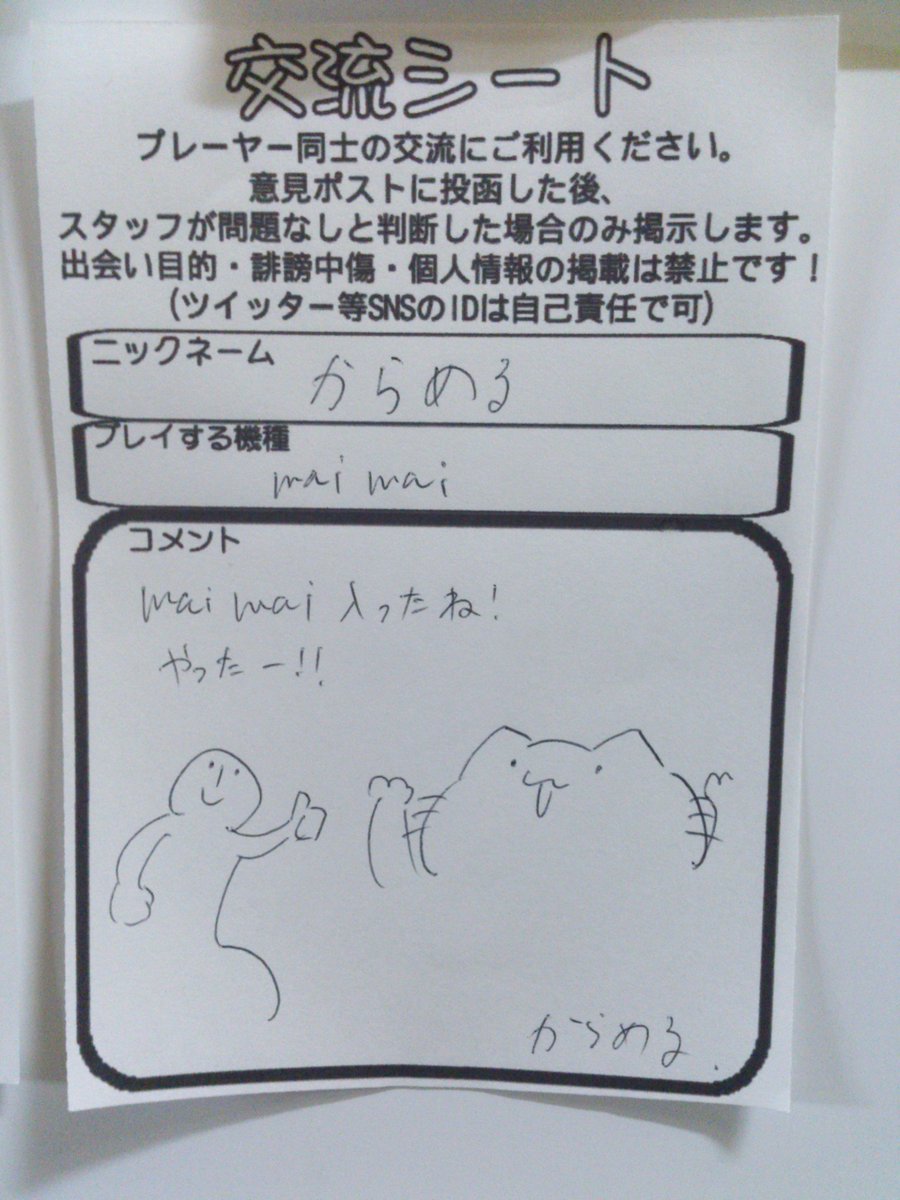 交流シート
プレーヤー同士の交流にご利用ください。
意見ポストに投函した後、
スタッフが問題なしと判断した場合のみ掲示します。
出会い目的・誹謗中傷・個人情報の掲載は禁止です！
(ツイッター等SNSのIDは自己責任で可)
ニックネーム
からめる
プレイする機種
maimai
コメント
maimai入ったね!
やったー!!
からめる.